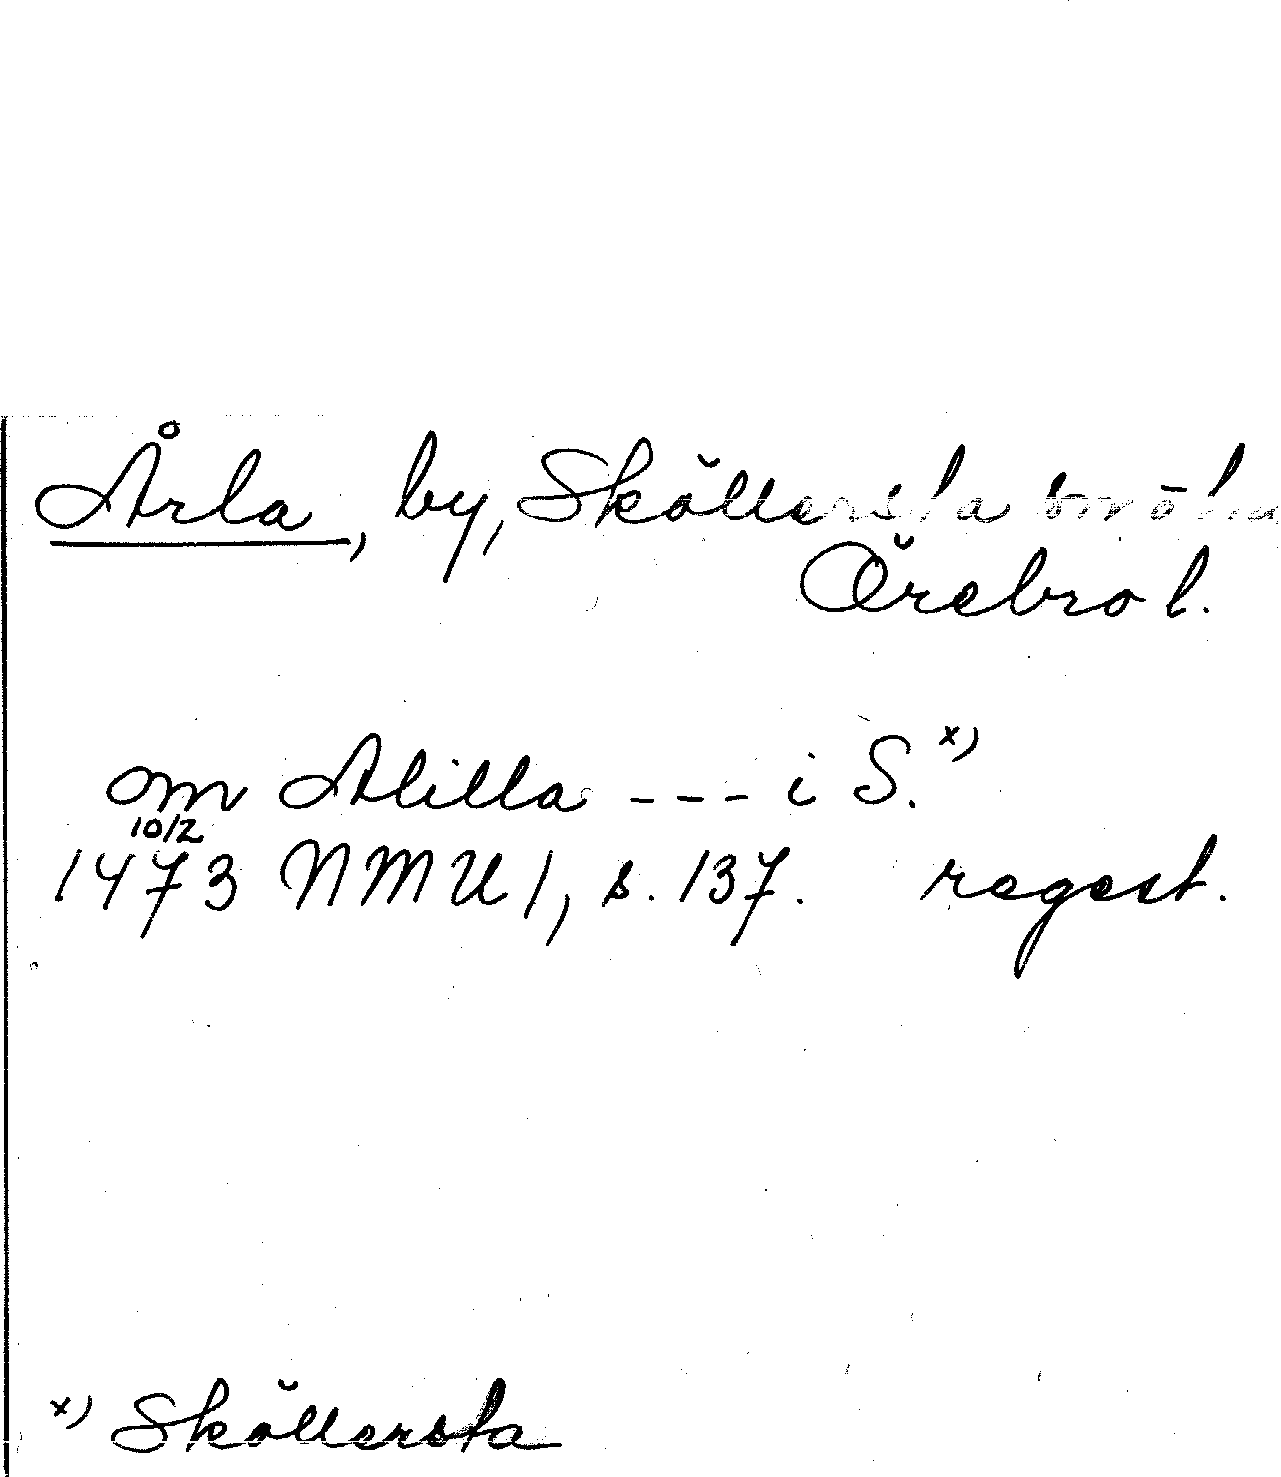 Årla, by, Sköllersta
Örebro l.
om Alilla --- i S. x)
10/2
1473 NMU 1, s. 137. regest.
x) Sköllersta